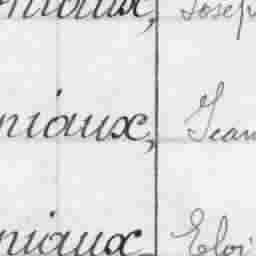 niaux, Joseph
niaux, Jean
niaux, Eloi